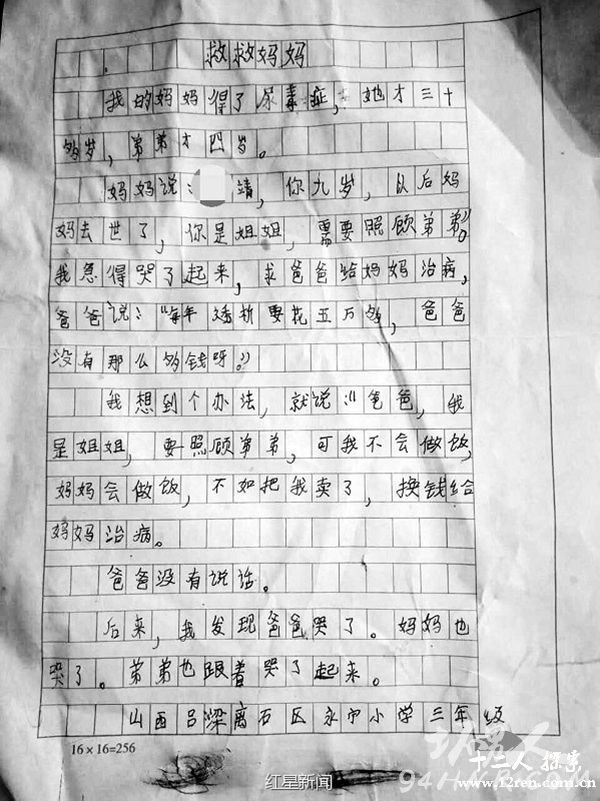 救救妈妈
我的妈妈得了尿毒症，她才三十
多岁，弟弟才四岁。
妈妈说：靖，你九岁，以后妈
妈去世了，你是姐姐，需要照顾弟弟”。
我急得哭了起来，求爸爸给妈妈治病，
爸爸说：“每年透析要花五万多，爸爸
没有那么多钱呀。”
我想到个办法，就说“爸爸，我
是姐姐，要照顾弟弟，可我不会做饭，
妈妈会做饭，不如把我卖了，换钱给
妈妈治病。
爸爸没有说话。
后来，我发现爸爸哭了。妈妈也
哭了。弟弟也跟着哭了起来。
山西吕梁离石区永宁小学三年级
16×16=256
红星新闻
十二人 探索
www.12ren.com.cn